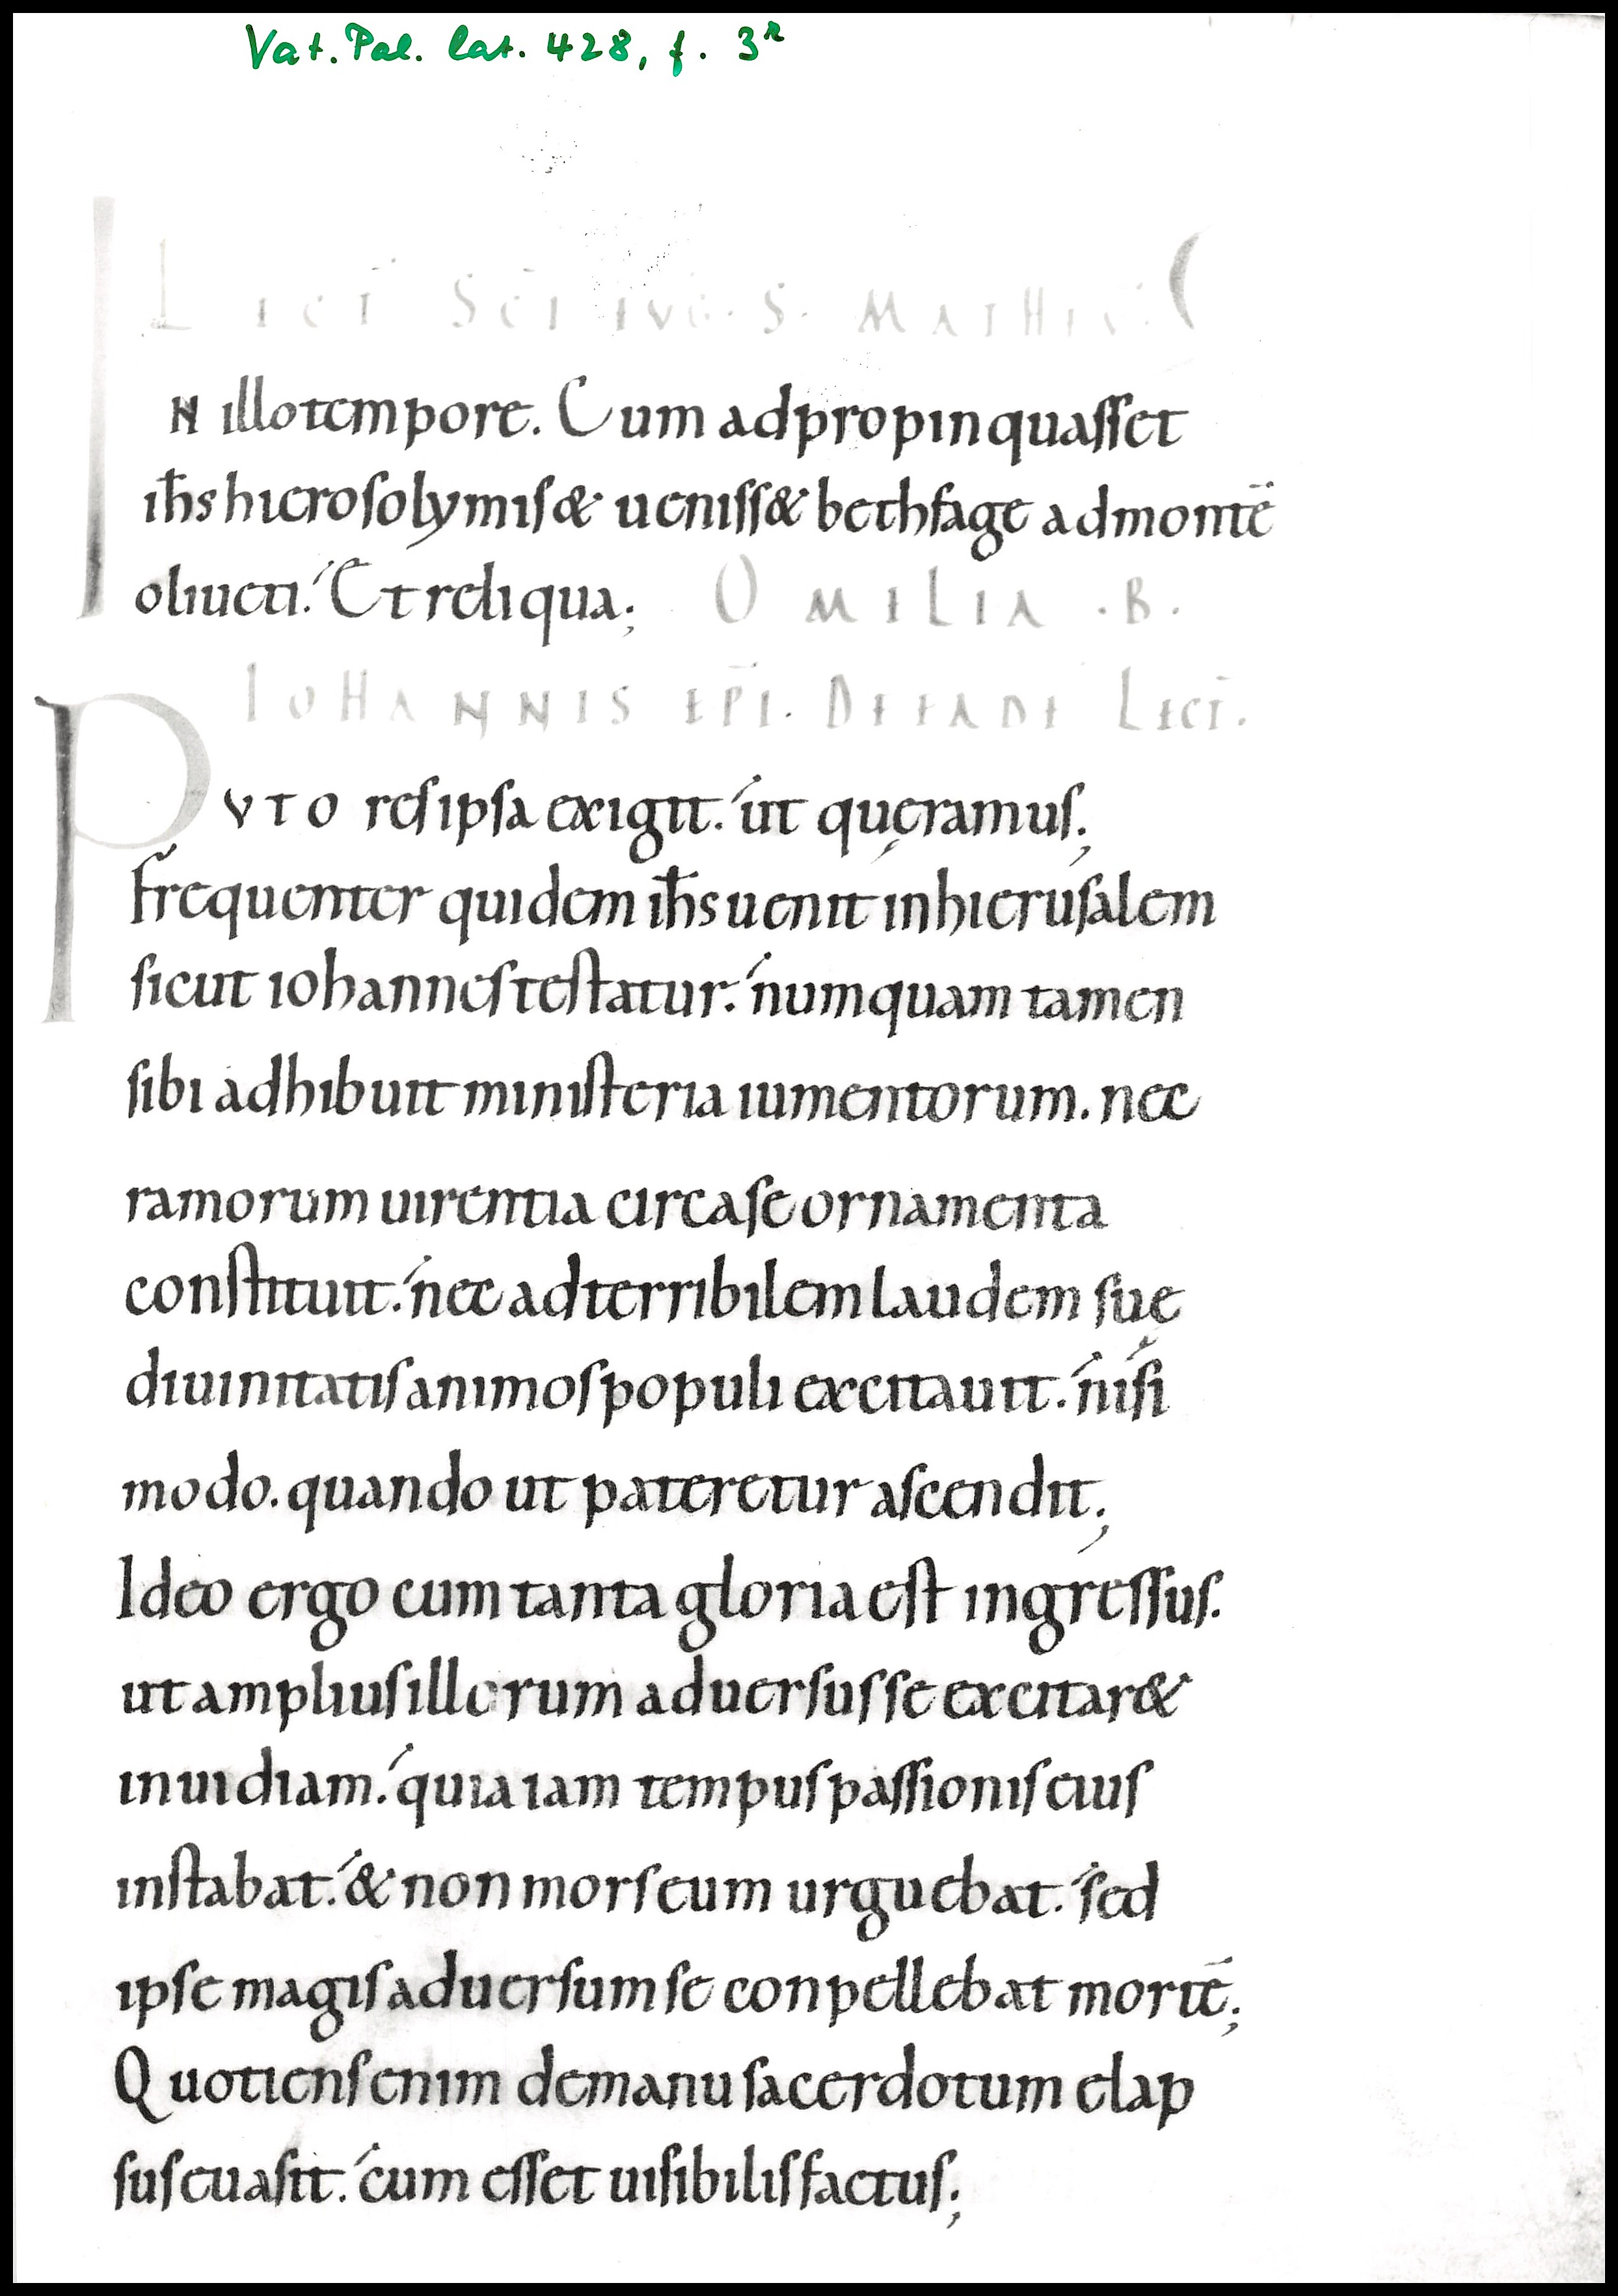 Vat. Pal. lat. 428, f. 3r
LECT̄ SC̄I EVG. S. MATHEV̄
IN illo tempore. Cum adpropinquasset
ih̄s hierosolymis & ueniss& bethfage ad montē
oliueti. Et reliqua; OMILIA .B.
IOHANNIS EP̄I. DE EADE LECT̄.
PVTO res ipsa exigit. ut queramus;
Frequenter quidem ih̄s uenit in hierusalem
sicut iohannes testatur. numquam tamen
sibi adhibuit ministeria iumentorum. nec
ramorum uirentia circa se ornamenta
constituit. nec ad terribilem laudem suę
diuinitatis animos populi excitauit. nisi
modo. quando ut pateretur ascendit;
Ideo ergo cum tanta gloria est ingressus.
ut amplius illorum aduersus se excitar&
inuidiam. quia iam tempus passionis eius
instabat. & non mors eum urguebat. sed
ipse magis aduersum se conpellebat mortē;
Quotiens enim de manu sacerdotum elap
sus euasit. cum esset uisibilis factus;